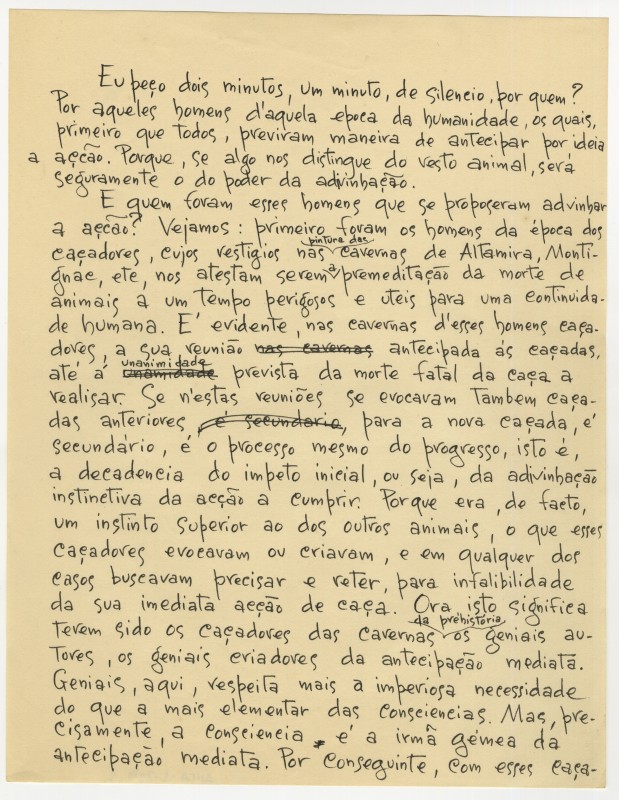 Eu peço dois minutos, um minuto, de silencio, por quem?
Por aqueles homens d'aquela epoca da humanidade, os quais,
primeiro que todos, previram maneira de antecipar por ideia
a acção. Porque, se algo nos distingue do resto animal, será
seguramente o do poder da adivinhação.
E quem foram esses homens que se proposeram advinhar
a acção? Vejamos: primeiro foram os homens da época dos
pintura das
caçadores, cujos vestigios nas cavernas de Altamira, Monti-
gnac, etc, nos atestam serem a premeditação da morte de
animais a um tempo perigosos e uteis para uma continuida-
de humana. E' evidente, nas cavernas d'esses homens caça-
dores, a sua reunião nas cavernas antecipada ás caçadas,
unanimidade
até á unamidade prevista da morte fatal da caça a
realisar. Se n'estas reuniões se evocavam tambem caça-
das anteriores, é secundario, para a nova caçada, e'
secundário, é o processo mesmo do progresso, isto é,
a decadencia do impeto inicial, ou seja, da adivinhação
instinctiva da acção a cumprir. Porque era, de facto,
um instinto superior ao dos outros animais, o que esses
caçadores evocavam ou criavam, e em qualquer dos
casos buscavam precisar e reter, para infalibilidade
da sua imediata acção de caça. Ora isto significa
da prehistória
terem sido os caçadores das cavernas os geniais au-
tores, os geniais criadores da antecipação mediata.
Geniais, aqui, respeita mais a imperiosa necessidade
do que a mais elementar das consciencias. Mas, pre-
cisamente, a consciencia e' a irmã gémea da
antecipação mediata. Por conseguinte, com esses caça-